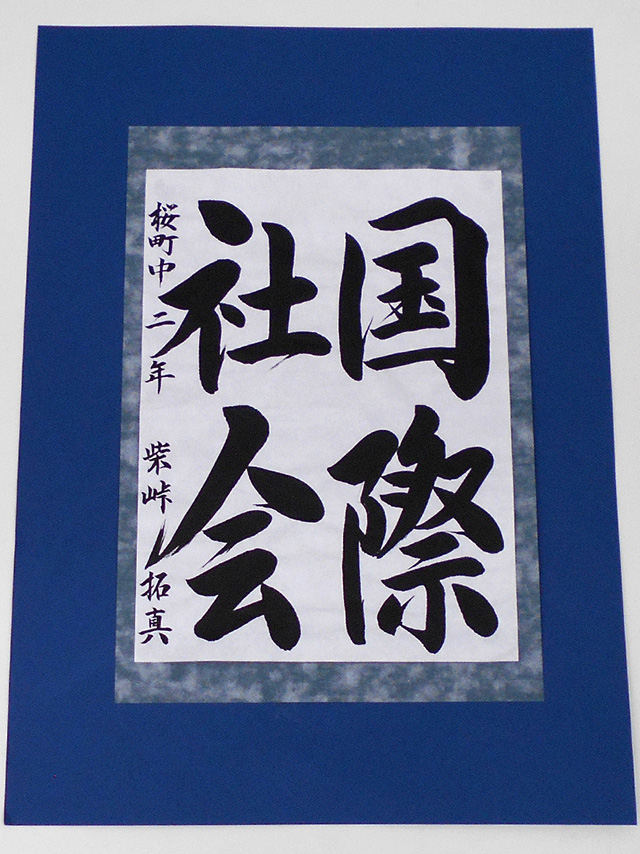 国際
社会
桜町中二年 柴峠拓真